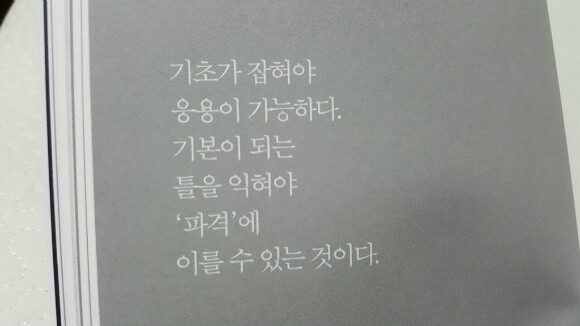 기초가 잡혀야
응용이 가능하다.
기본이 되는
틀을 익혀야
‘파격’에
이를 수 있는 것이다.